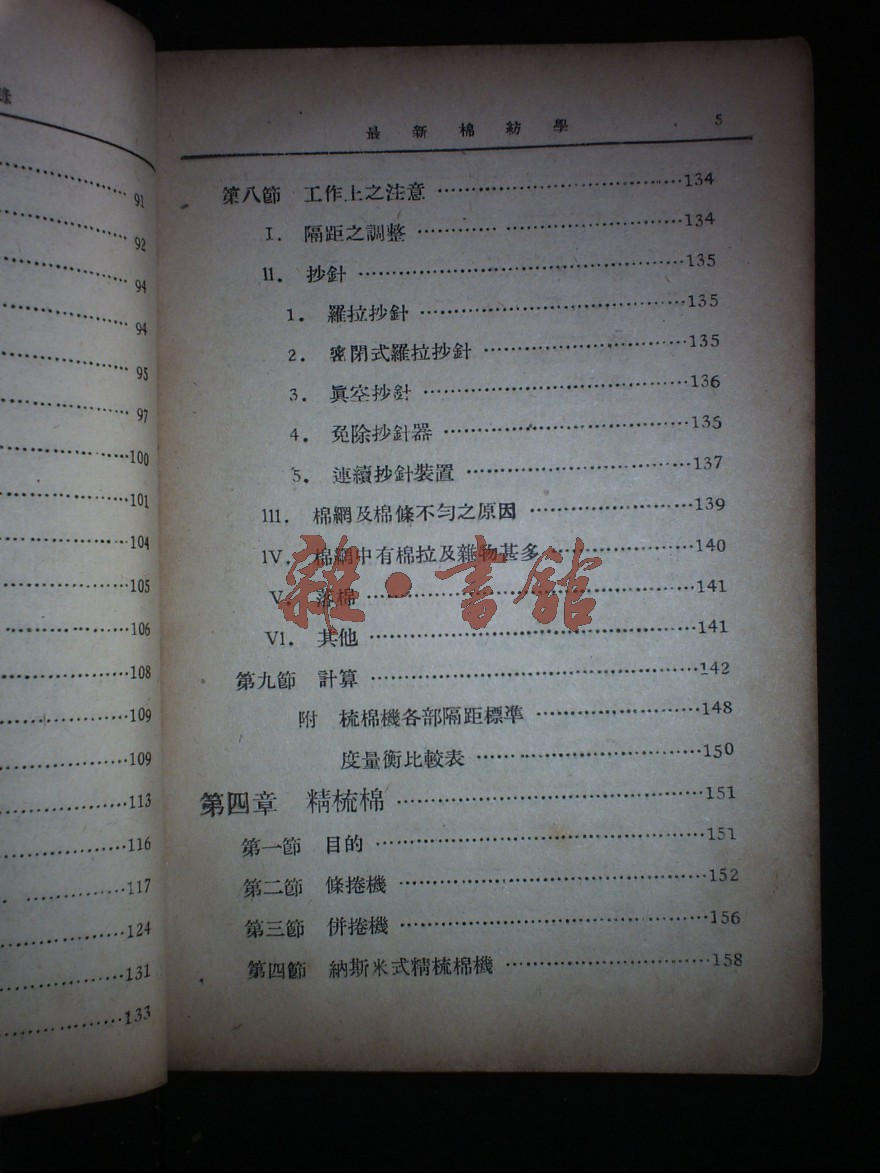 錄
91
92
94
94
95
97
100
101
104
105
106
108
109
109
113
116
117
124
131
133
最新棉紡學 5
第八節 工作上之注意 ………134
I. 隔距之調整 ………134
II. 抄針 ………135
1. 羅拉抄針 ………135
2. 密閉式羅拉抄針 ………135
3. 眞空抄針 ………136
4. 免除抄針器 ………135
5. 連續抄針裝置 ………137
III. 棉網及棉條不勻之原因 ………139
IV. 棉網中有棉拉及雜物甚多 ………140
V. 落棉 ………141
VI. 其他 ………141
第九節 計算 ………142
附 梳棉機各部隔距標準 ………148
度量衡比較表 ………150
第四章 精梳棉 ………151
第一節 目的 ………151
第二節 條捲機 ………152
第三節 併捲機 ………156
第四節 納斯米式精梳棉機 ………158
雜·書館